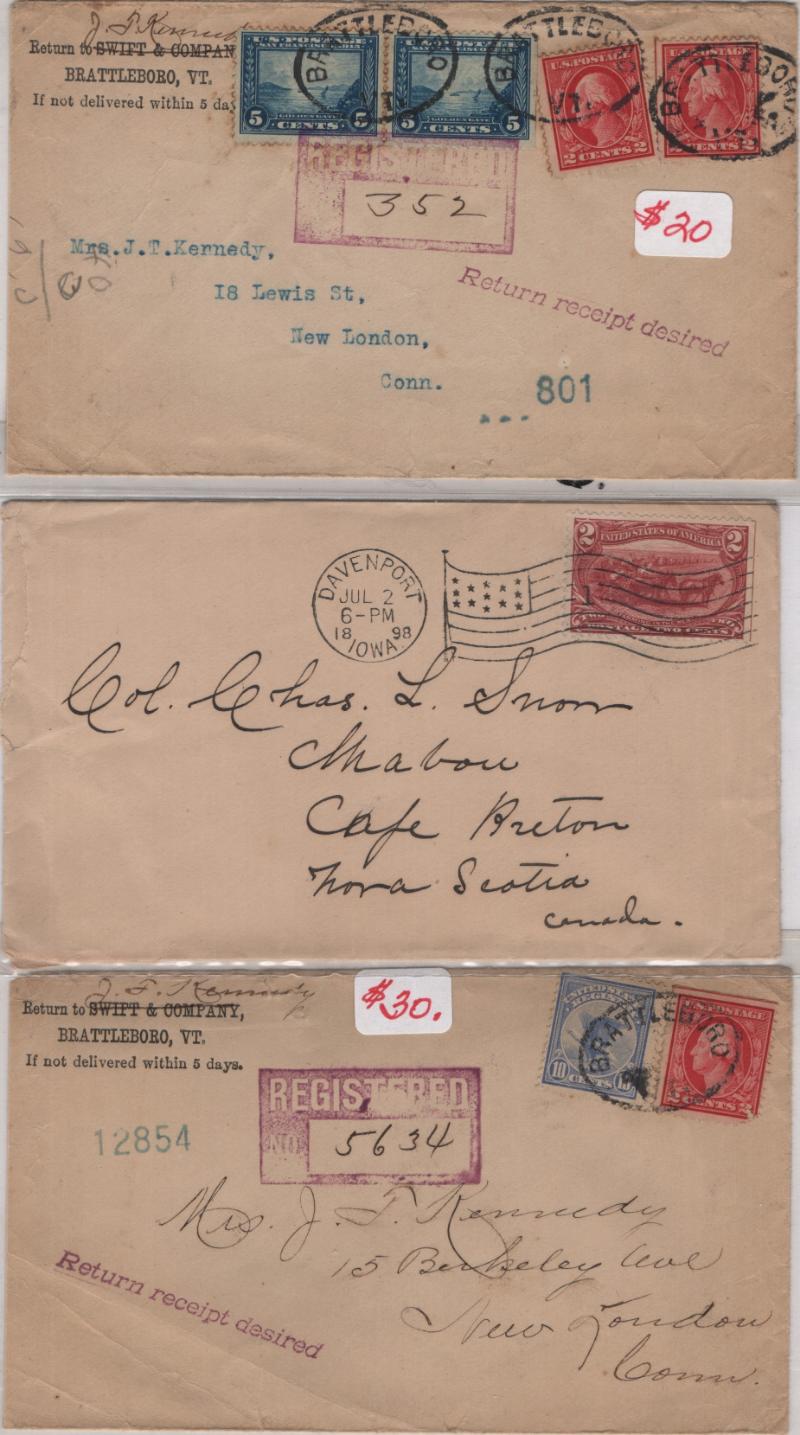 J. T. Kennedy
Return to SWIFT & COMPAN
BRATTLEBORO, VT.
If not delivered within 5 day
U.S. POSTAGE
SAN FRANCISCO
GOLDEN GATE
5 CENTS 5
GOLDEN GATE
5 CENTS 5
BRATTLEBORO
VT.
BRATTLEBORO
VT.
BRATTLEBORO
U.S. POSTAGE
2 CENTS 2
U.S. POSTAGE
2 CENTS 2
REGISTERED
352
$20
Mrs. J.T.Kernedy,
18 Lewis St,
New London,
Conn.
Return receipt desired
801
DAVENPORT
JUL 2
6-PM
18 98
IOWA.
2 2
UNITED STATES OF AMERICA
POSTAGE TWO CENTS
Col. Chas. L. Snow
Mabou
Cape Breton
Nova Scotia
Canada.
J. T. Kennedy
Return to SWIFT & COMPANY,
BRATTLEBORO, VT.
If not delivered within 5 days.
$30.
10 CENTS 10
BRATTLEBORO
U.S. POSTAGE
2 CENTS 2
REGISTERED
NO. 5634
12854
Mrs. J. T. Kennedy
15 Berkeley Ave
New London
Conn.
Return receipt desired